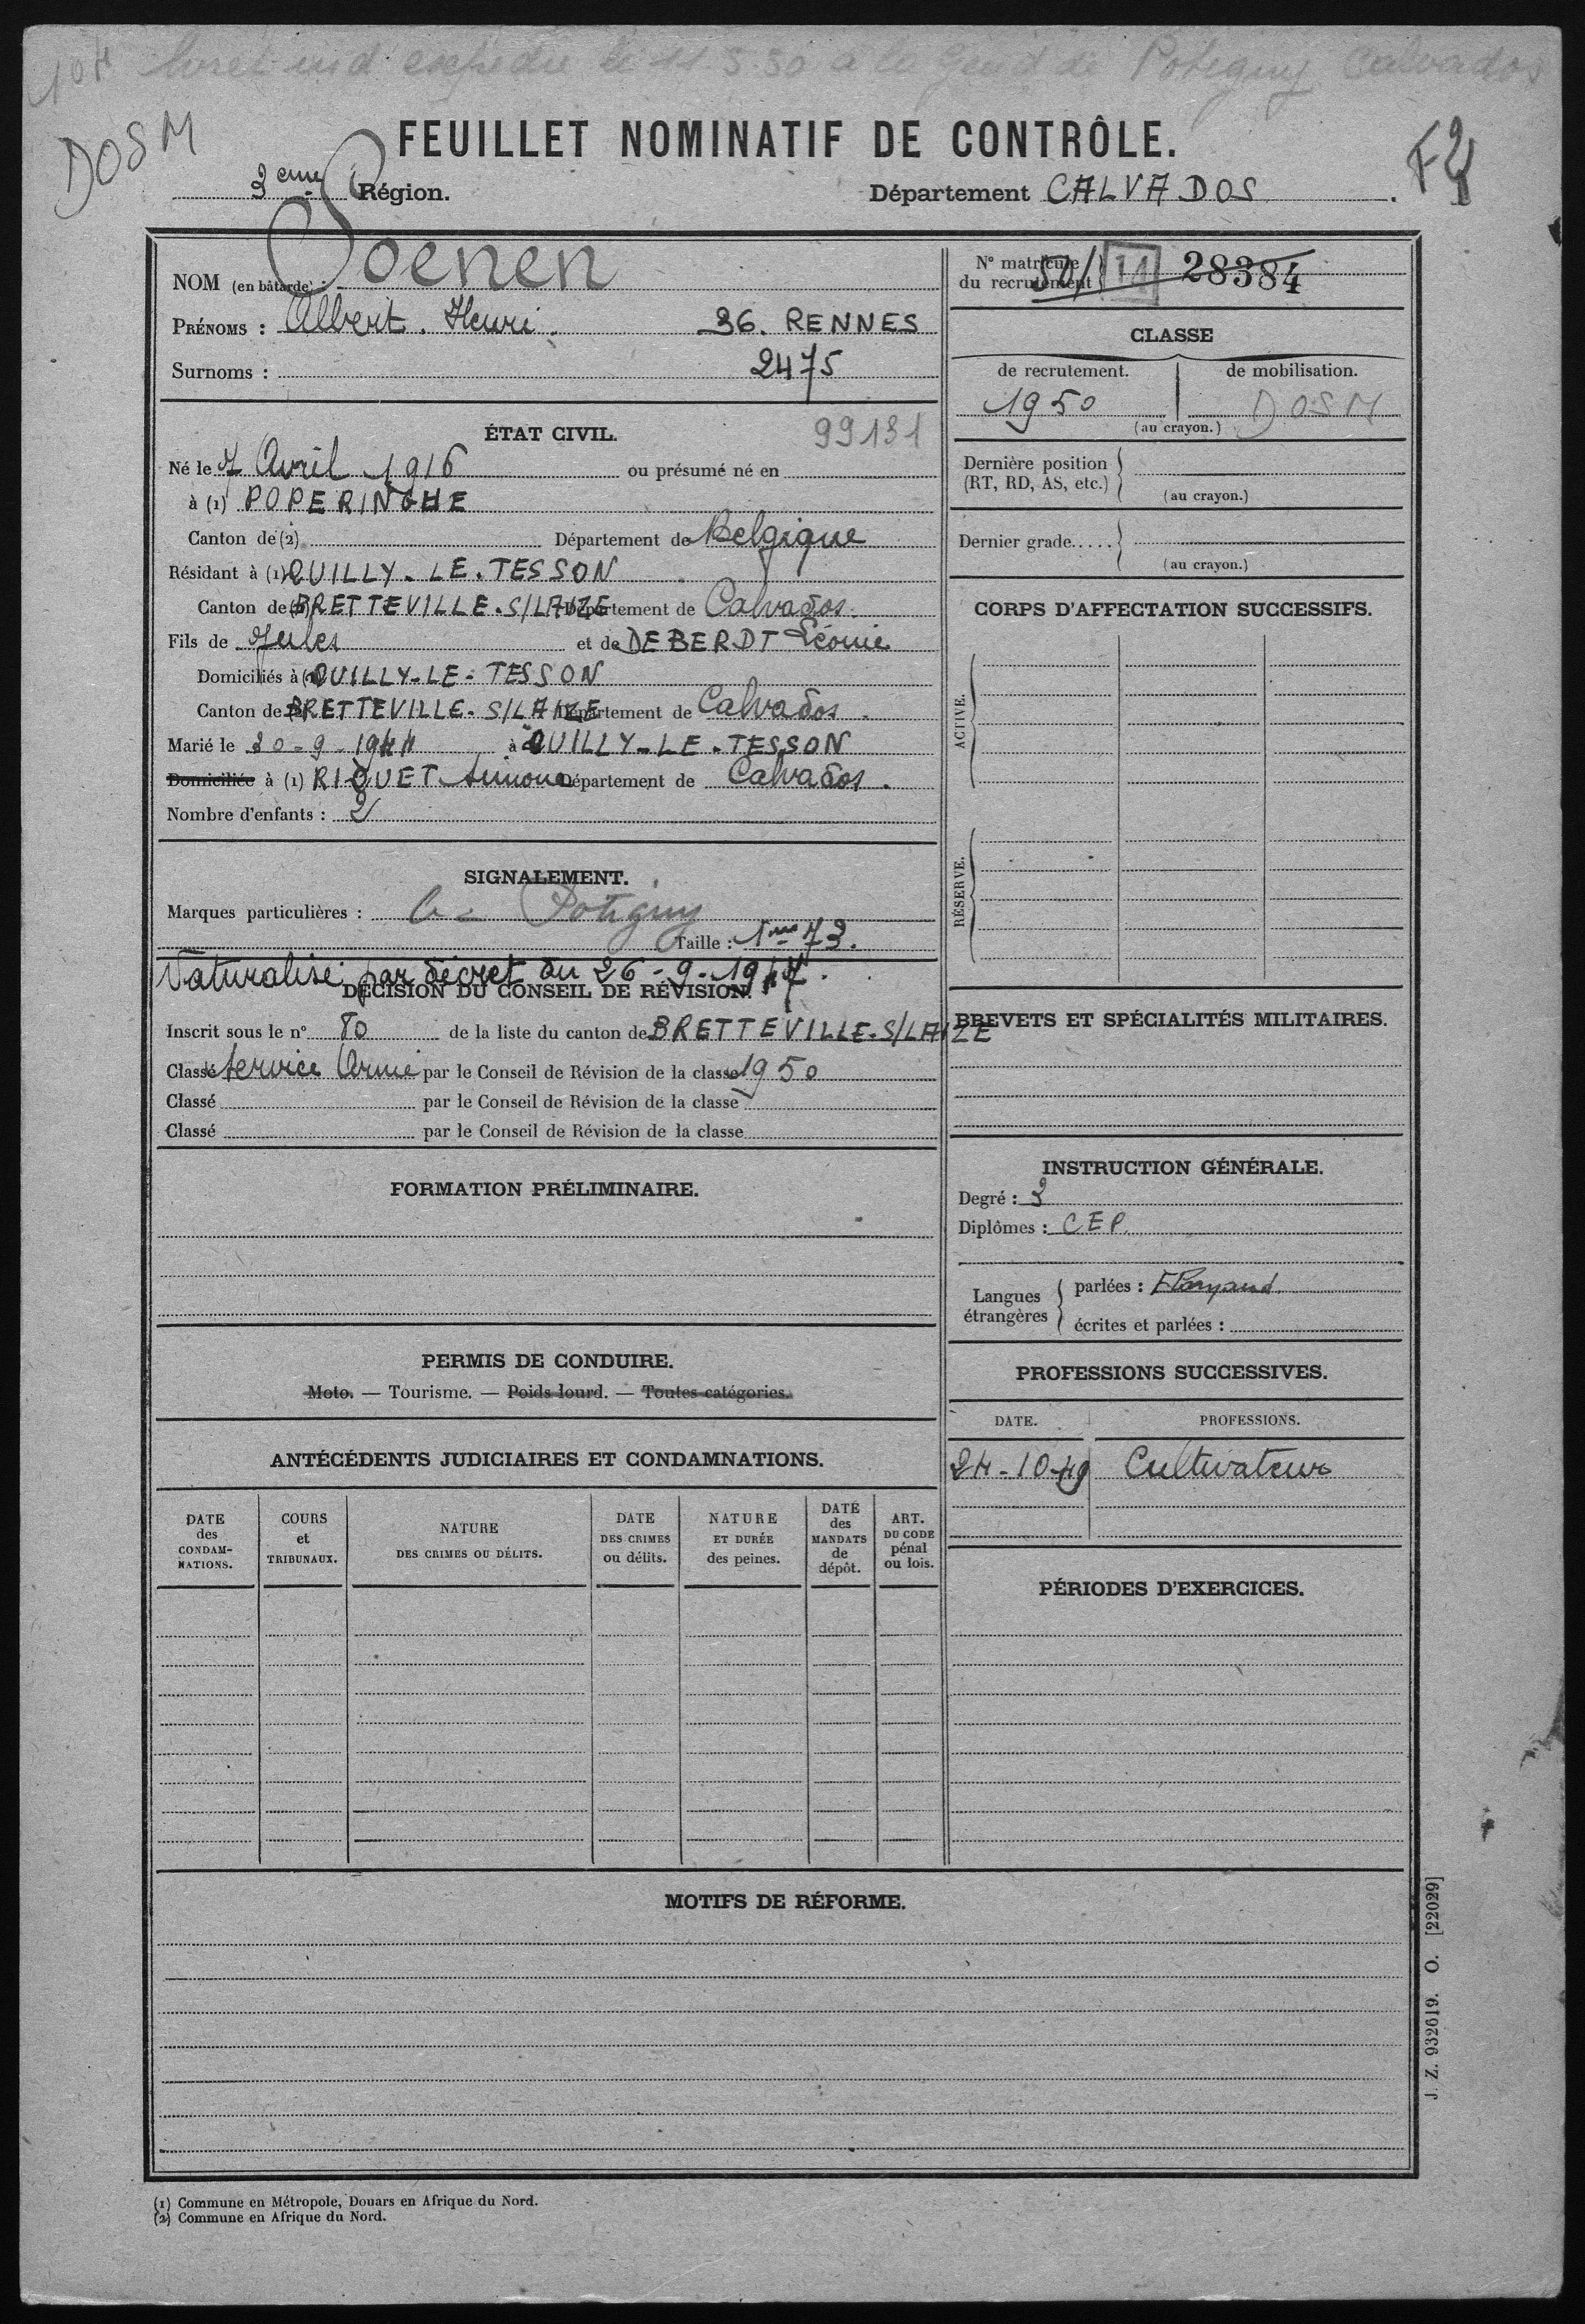 livret ind expédié le 11.5.50 à la Gend de Potigny Calvados
DOSM
FEUILLET NOMINATIF DE CONTRÔLE.
3eme Région.
Département CALVADOS.
NOM (en bâtarde) :
PRÉNOMS : Albert. Henri. 36. RENNES
Surnoms : 2475
ÉTAT CIVIL. 99131
Né le 7 Avril 1916 ou présumé né en
à (1) POPERINGHE
Canton de (2) Département de Belgique
Résidant à (1) OUILLY-LE-TESSON
Canton de (2) BRETTEVILLE-S/LAIZE Département de Calvados.
Fils de Jules et de DEBERDT Léonie
Domiciliés à (1) OUILLY-LE-TESSON
Canton de (2) BRETTEVILLE-S/LAIZE Département de Calvados.
Marié le 30-9-1944 à OUILLY-LE-TESSON
Domiciliée à (1) RIQUET Simone Département de Calvados.
Nombre d'enfants : 2
SIGNALEMENT.
Marques particulières : Potigny
Taille : 1m 73.
Naturalisé par décret du 26-9-1947.
DÉCISION DU CONSEIL DE RÉVISION.
Inscrit sous le n° 80 de la liste du canton de BRETTEVILLE-S/LAIZE
Classé Service Armé par le Conseil de Révision de la classe 1950
Classé par le Conseil de Révision de la classe
Classé par le Conseil de Révision de la classe
FORMATION PRÉLIMINAIRE.
PERMIS DE CONDUIRE.
Moto. — Tourisme. — Poids lourd. — Toutes catégories.
ANTÉCÉDENTS JUDICIAIRES ET CONDAMNATIONS.
DATE des CONDAMNATIONS.
COURS et TRIBUNAUX.
NATURE DES CRIMES OU DÉLITS.
DATE DES CRIMES ou délits.
NATURE ET DURÉE des peines.
DATE des MANDATS de dépôt.
ART. DU CODE pénal ou lois.
N° matricule du recrutement 50/ 14 28384
CLASSE
de recrutement. de mobilisation.
1950 DOSM
(au crayon.)
Dernière position (RT, RD, AS, etc.)
(au crayon.)
Dernier grade.....
(au crayon.)
CORPS D'AFFECTATION SUCCESSIFS.
ACTIVE.
RÉSERVE.
BREVETS ET SPÉCIALITÉS MILITAIRES.
INSTRUCTION GÉNÉRALE.
Degré : 3
Diplômes : CEP.
Langues étrangères
parlées : Flamand.
écrites et parlées :
PROFESSIONS SUCCESSIVES.
DATE. PROFESSIONS.
24-10-49 Cultivateur
PÉRIODES D'EXERCICES.
MOTIFS DE RÉFORME.
J. Z. 932619. O. [22029]
(1) Commune en Métropole, Douars en Afrique du Nord.
(2) Commune en Afrique du Nord.